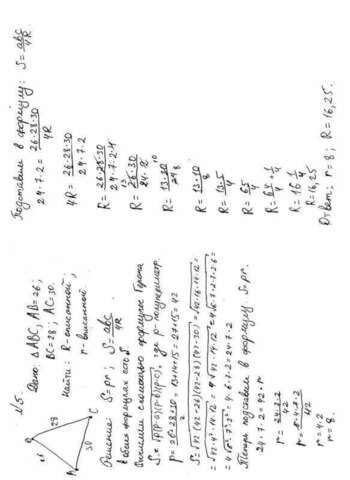 №5.
Дано: △ABC, AB=26;
BC=28; AC=30.
Найти: R-описанной,
r-вписанной
B
26
28
A
30
C
Решение: S=pr; S=abc/4R
в обеих формулах есть S.
Вычислим с помощью формулы Герона
S=√p(p-a)(p-b)(p-c), где p-полупериметр.
p=26+28+30/2=13+14+15=27+15=42
S=√42(42-26)(42-28)(42-30)=√42·16·14·12=
Теперь подставим в формулу S=pr.
24·7·2=42·r
r=24·7·2/42
r=4·2
r=8.
Подставим в формулу: S=abc/4R
24·7·2=26·28·30/4R
4R=26·28·30/24·7·2
R=26·28·30/24·7·2·4
R=26·30/24·2
R=13·30/24
R=13·10/8
R=13·5/4
R=65/4
R=64/4+1/4
R=16 1/4
R=16,25
Ответ: r=8; R=16,25.